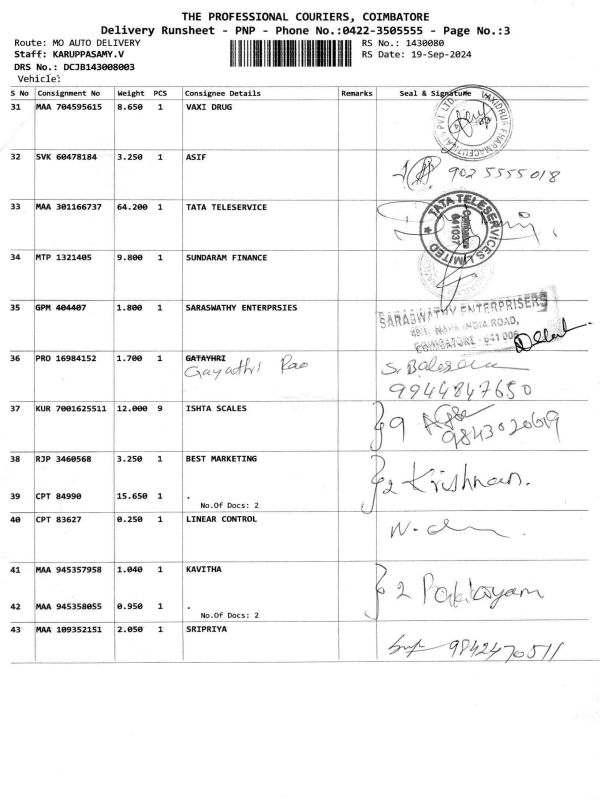 THE PROFESSIONAL COURIERS, COIMBATORE
Delivery Runsheet - PNP - Phone No.:0422-3505555 - Page No.:3
Route: MO AUTO DELIVERY RS No.: 1430080
Staff: KARUPPASAMY.V RS Date: 19-Sep-2024
DRS No.: DCJB143008003
Vehicle:
S No Consignment No Weight PCS Consignee Details Remarks Seal & Signature
31 MAA 704595615 8.650 1 VAXI DRUG
VAXIDRUG PHARMACEUTICAL PVT LTD
32 SVK 60478184 3.250 1 ASIF
902 5555018
33 MAA 301166737 64.200 1 TATA TELESERVICE
TATA TELESERVICES LIMITED
Coimbatore
641037
34 MTP 1321405 9.800 1 SUNDARAM FINANCE
35 GPM 404407 1.800 1 SARASWATHY ENTERPRSIES
SARASWATHY ENTERPRISERS
INDIA ROAD,
COIMBATORE - 641 006
36 PRO 16984152 1.700 1 GATAYHRI
Gayathri Rao
9944847650
37 KUR 7001625511 12.000 9 ISHTA SCALES
9
38 RJP 3460568 3.250 1 BEST MARKETING
2 Krishnan.
39 CPT 84990 15.650 1 .
No.Of Docs: 2
40 CPT 83627 0.250 1 LINEAR CONTROL
41 MAA 945357958 1.040 1 KAVITHA
2
42 MAA 945358055 0.950 1 .
No.Of Docs: 2
43 MAA 109352151 2.050 1 SRIPRIYA
9842470511